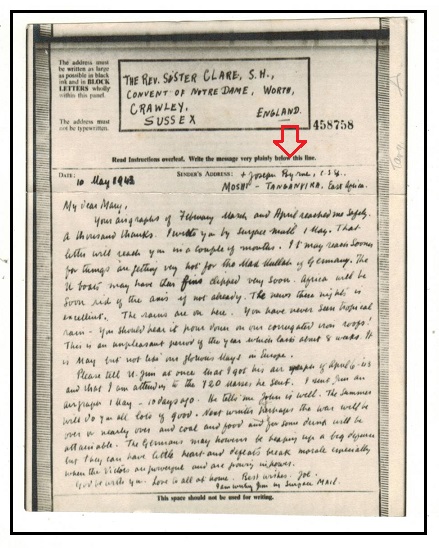 The address must
be written as large
as possible in black
ink and in BLOCK
LETTERS wholly
within this panel.
The address must
not be typewritten.
THE REV. SISTER CLARE, S.H.,
CONVENT OF NOTRE DAME, WORTH,
CRAWLEY,
SUSSEX ENGLAND.
458758
Read Instructions overleaf. Write the message very plainly below this line.
DATE: 10 May 1943 SENDER'S ADDRESS: + Joseph Byrne, C.S.Sp.
MOSHI - TANGANYIKA, East Africa.
My dear Mary,
Your airgraphs of February March and April reached me safely.
A thousand thanks. I wrote you by surface mail 1 May. That
letter will reach you in a couple of months. It may reach sooner,
for things are getting very hot for the Mad Mullah of Germany. The
U boats may have their fins clipped very soon. Africa will be
soon rid of the axis if not already. The news these nights is
excellent. The rains are on here. You have never seen tropical
rain - You should hear it pour down on our corrugated iron roofs!
This is an unpleasant period of the year which lasts about 8 weeks. It
is May but not like our glorious May in Europe.
Please tell U. Jim at once that I got his air graph of April 6
and that I am attending to the 420 masses he sent. I sent Jim an
airgraph 1 May - 10 days ago. He tells me John is well. The Summer
will do you all lots of good. Next winter perhaps the war will be
over or nearly over and coal and food and for some drink will be
attainable. The Germans may however be heaping up a big defence
but they can have little heart and defeats break morale especially
when the Victors are and are in power.
God be with you. Love to all at home. Best wishes. Joe.
I am writing Jim by Surface Mail.
This space should not be used for writing.